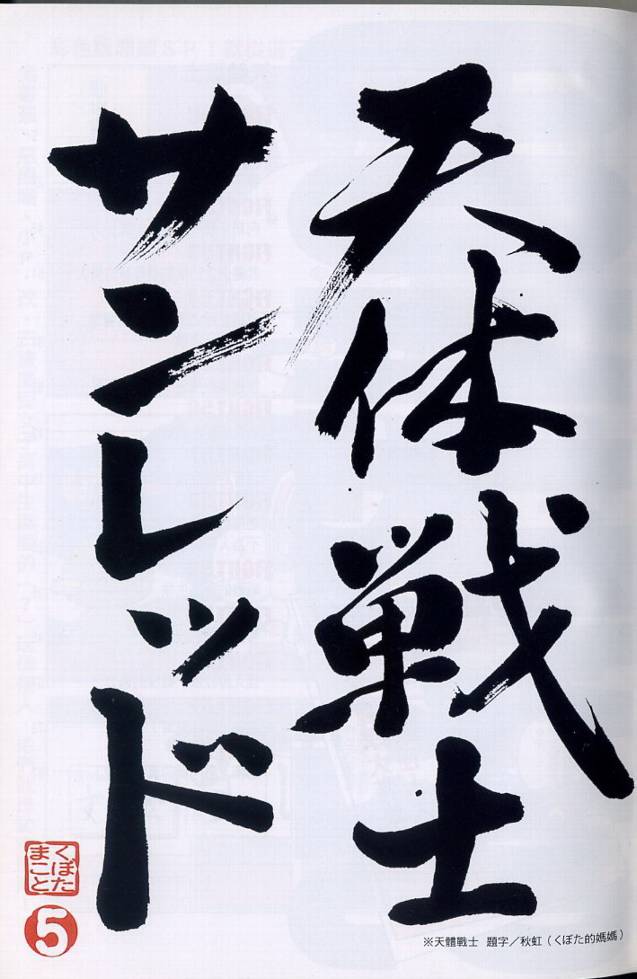 天体戦士
サンレッド
くぼた
まこと
5
※天體戰士 題字／秋虹（くぼた的媽媽）